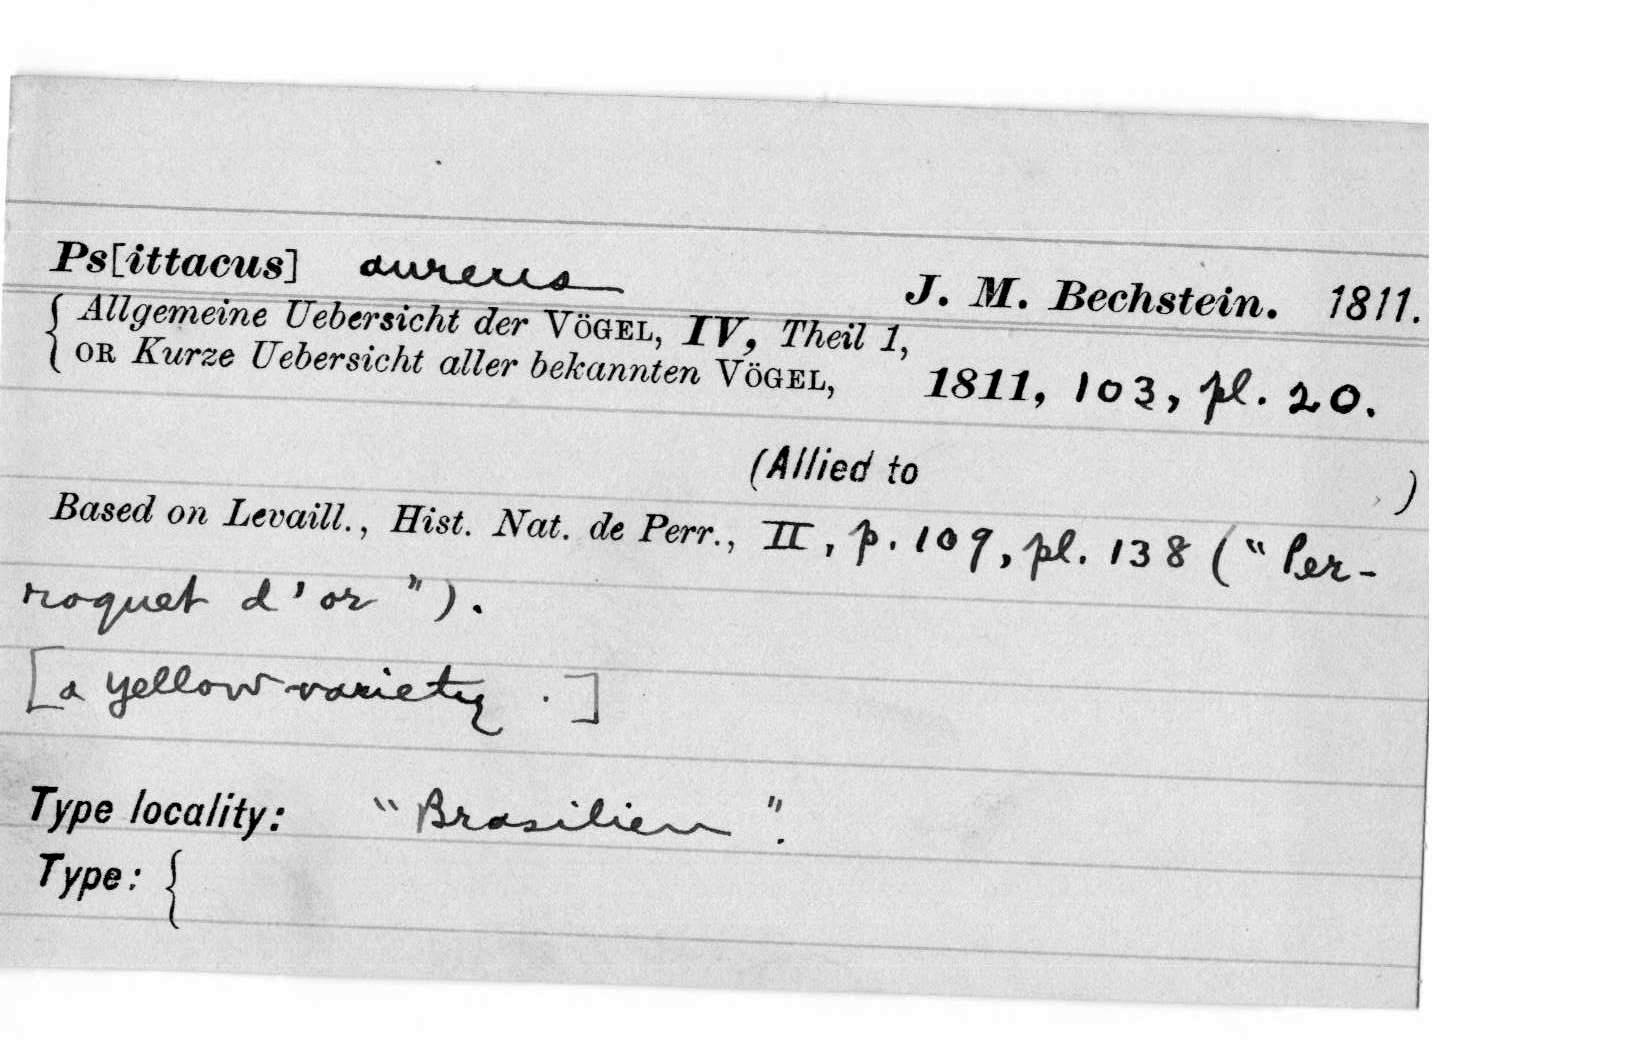 Ps[ittacus] aureus J. M. Bechstein. 1811.
{ Allgemeine Uebersicht der VÖGEL, IV, Theil 1,
{ OR Kurze Uebersicht aller bekannten VÖGEL, 1811, 103, pl. 20.
(Allied to )
Based on Levaill., Hist. Nat. de Perr., II, p. 109, pl. 138 (“Per-
roquet d'or”).
[a yellow variety .]
Type locality: “Brasilien”.
Type: {